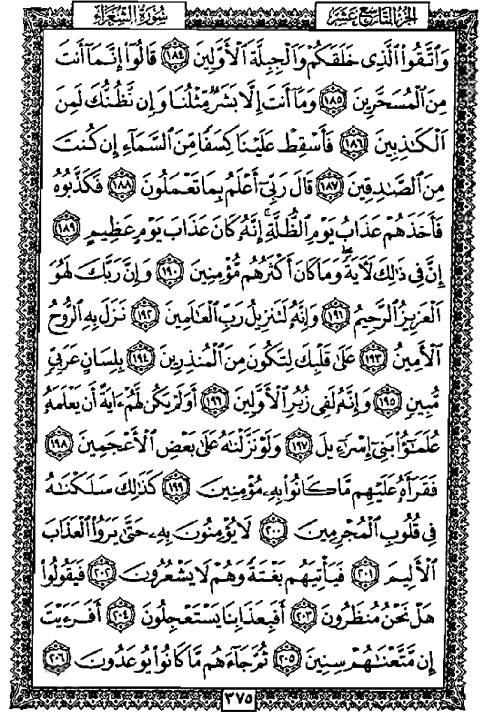 الجزء التاسع عشر سورة الشعراء
وَاتَّقُوا الَّذِي خَلَقَكُمْ وَالْجِبِلَّةَ الْأَوَّلِينَ ١٨٤ قَالُوا إِنَّمَا أَنتَ
مِنَ الْمُسَحَّرِينَ ١٨٥ وَمَا أَنتَ إِلَّا بَشَرٌ مِّثْلُنَا وَإِن نَّظُنُّكَ لَمِنَ
الْكَاذِبِينَ ١٨٦ فَأَسْقِطْ عَلَيْنَا كِسَفًا مِّنَ السَّمَاءِ إِن كُنتَ
مِنَ الصَّادِقِينَ ١٨٧ قَالَ رَبِّي أَعْلَمُ بِمَا تَعْمَلُونَ ١٨٨ فَكَذَّبُوهُ
فَأَخَذَهُمْ عَذَابُ يَوْمِ الظُّلَّةِ إِنَّهُ كَانَ عَذَابَ يَوْمٍ عَظِيمٍ ١٨٩
إِنَّ فِي ذَٰلِكَ لَآيَةً وَمَا كَانَ أَكْثَرُهُم مُّؤْمِنِينَ ١٩٠ وَإِنَّ رَبَّكَ لَهُوَ
الْعَزِيزُ الرَّحِيمُ ١٩١ وَإِنَّهُ لَتَنزِيلُ رَبِّ الْعَالَمِينَ ١٩٢ نَزَلَ بِهِ الرُّوحُ
الْأَمِينُ ١٩٣ عَلَىٰ قَلْبِكَ لِتَكُونَ مِنَ الْمُنذِرِينَ ١٩٤ بِلِسَانٍ عَرَبِيٍّ
مُّبِينٍ ١٩٥ وَإِنَّهُ لَفِي زُبُرِ الْأَوَّلِينَ ١٩٦ أَوَلَمْ يَكُن لَّهُمْ ءَايَةً أَن يَعْلَمَهُ
عُلَمَٰٓؤُا۟ بَنِي إِسْرَٰٓءِيلَ ١٩٧ وَلَوْ نَزَّلْنَٰهُ عَلَىٰ بَعْضِ الْأَعْجَمِينَ ١٩٨
فَقَرَأَهُ عَلَيْهِم مَّا كَانُوا بِهِ مُؤْمِنِينَ ١٩٩ كَذَٰلِكَ سَلَكْنَٰهُ
فِي قُلُوبِ الْمُجْرِمِينَ ٢٠٠ لَا يُؤْمِنُونَ بِهِ حَتَّىٰ يَرَوُا الْعَذَابَ
الْأَلِيمَ ٢٠١ فَيَأْتِيَهُم بَغْتَةً وَهُمْ لَا يَشْعُرُونَ ٢٠٢ فَيَقُولُوا
هَلْ نَحْنُ مُنظَرُونَ ٢٠٣ أَفَبِعَذَابِنَا يَسْتَعْجِلُونَ ٢٠٤ أَفَرَءَيْتَ
إِن مَّتَّعْنَٰهُمْ سِنِينَ ٢٠٥ ثُمَّ جَاءَهُم مَّا كَانُوا يُوعَدُونَ ٢٠٦
٣٧٥